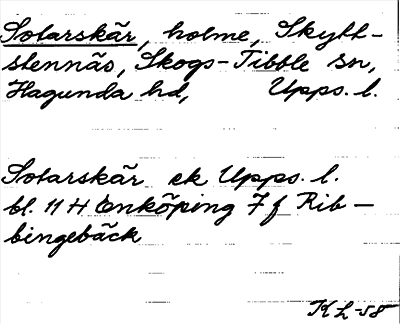 Sotarskär, holme, Skytt-
stennäs, Skogs-Tibble sn,
Hagunda hd, Upps. l.
Sotarskär ek Upps. l.
bl. 11 H Enköping 7 f Rib-
bingebäck
KL-58